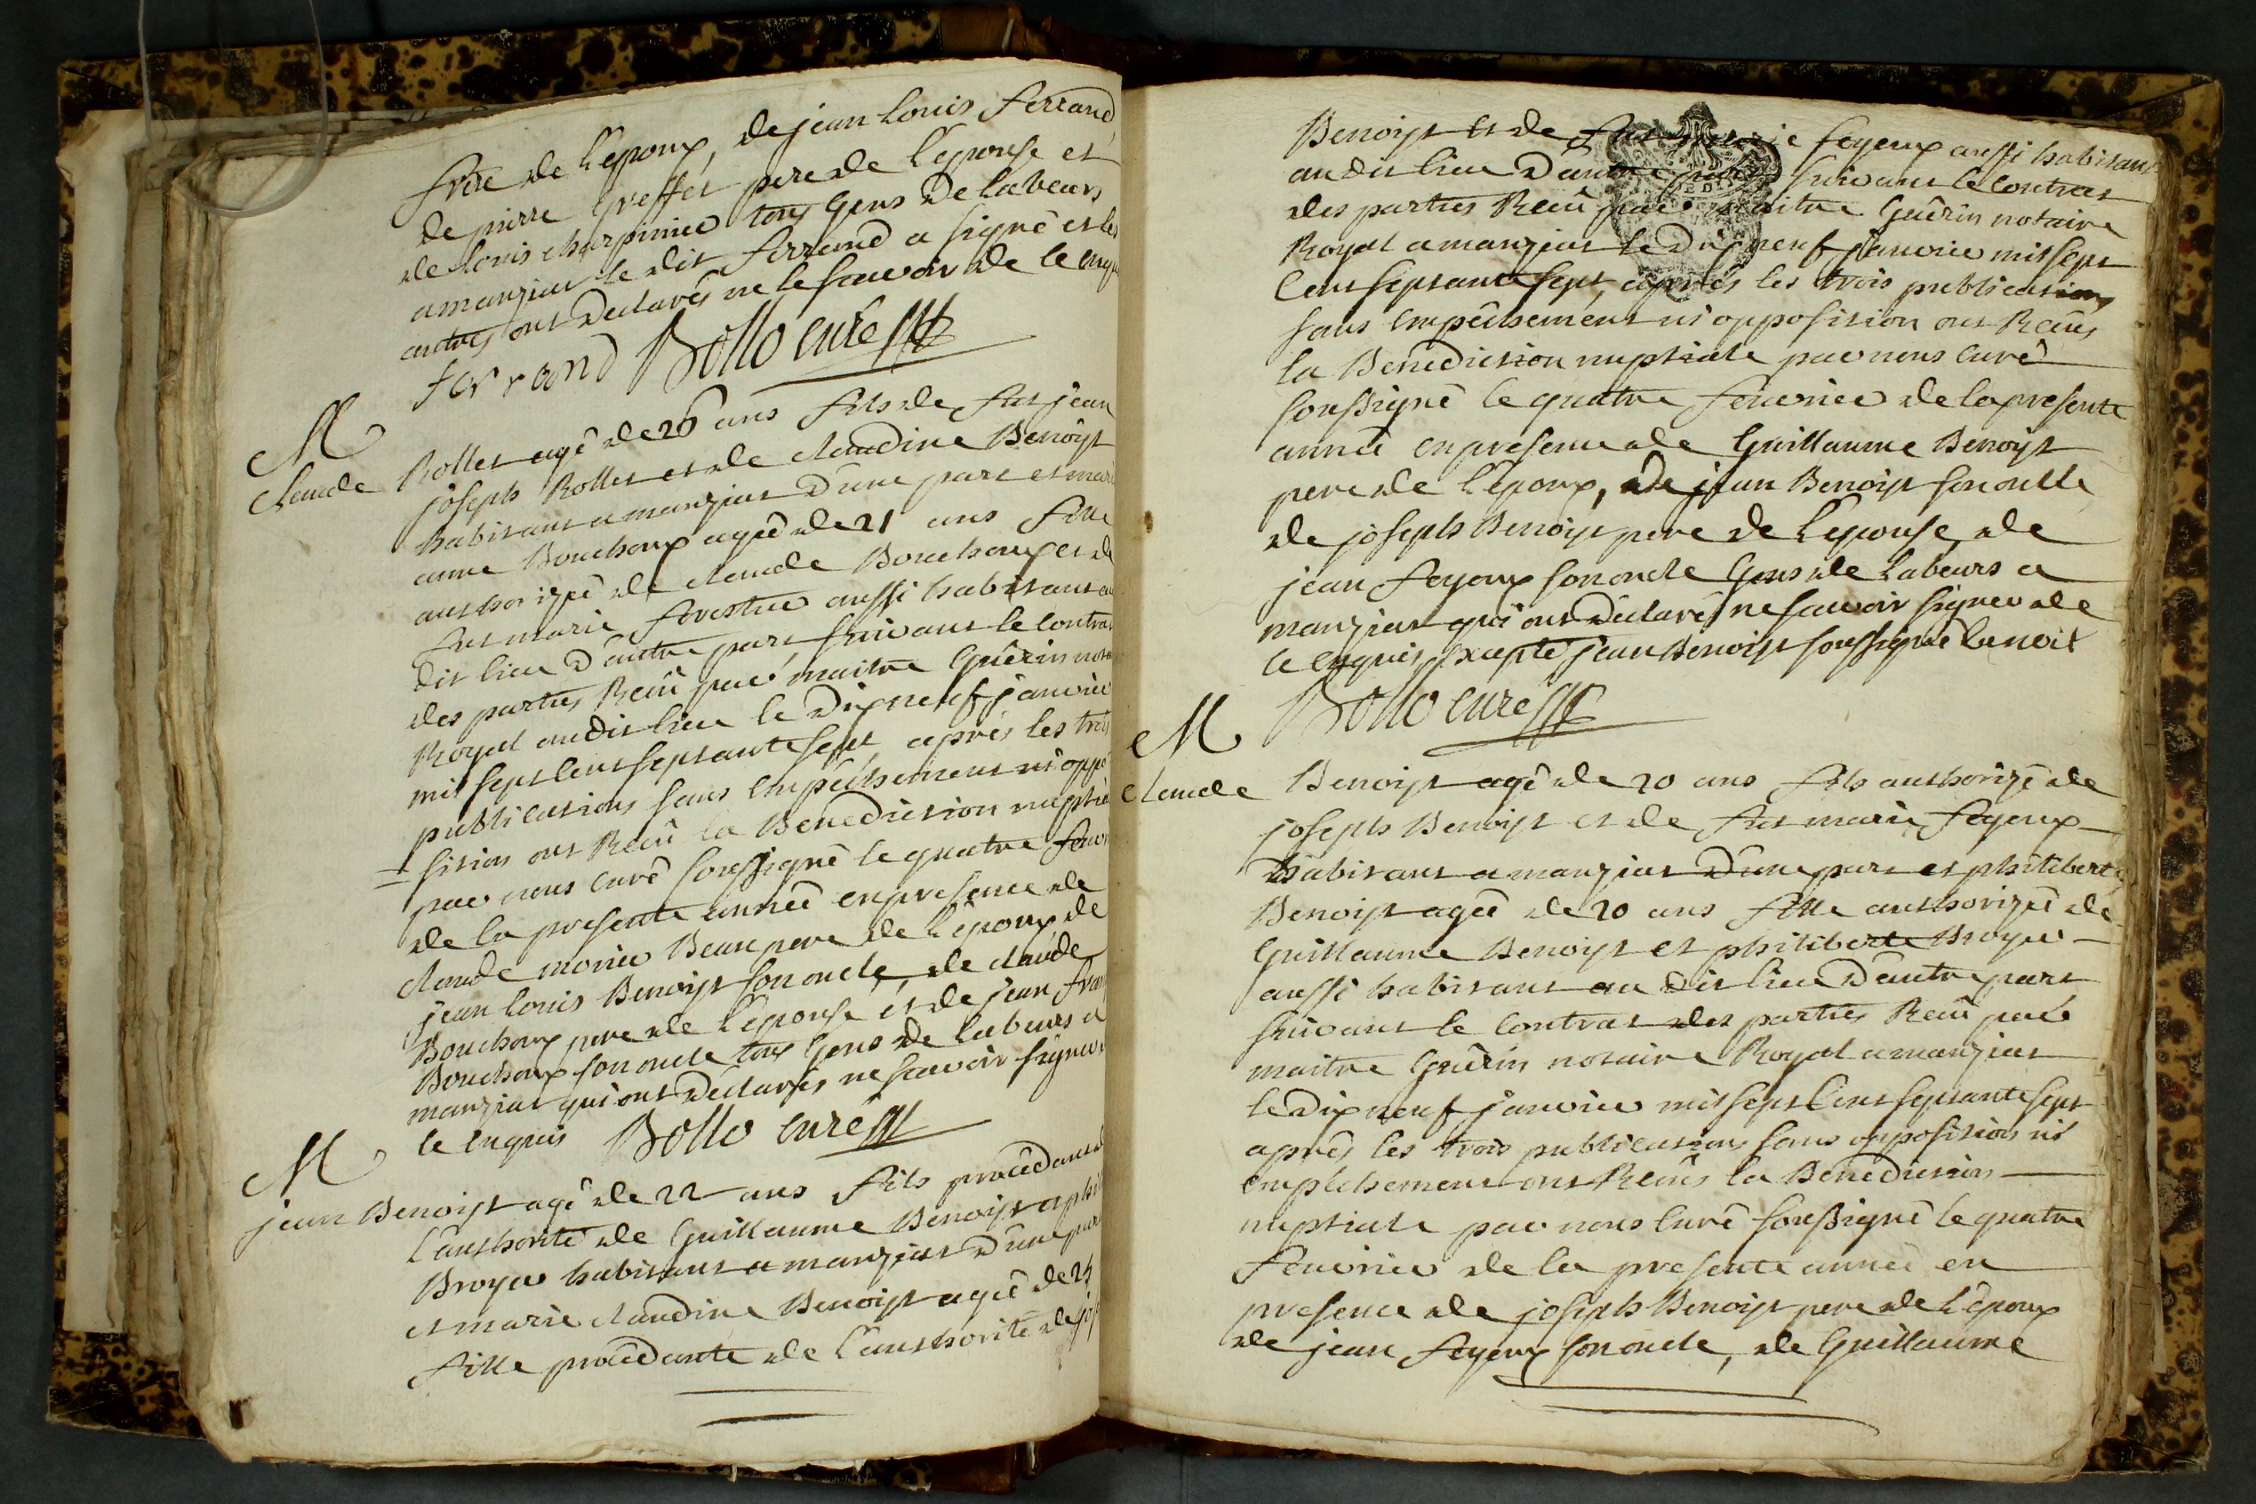 frère de l'epoux, de jean Louis ferrand
de pierre Greffet pere de l'epouse et
de Louis charpinnie tous Gens de labeurs
a manziat le dit ferrand a signé et les
autres ont declarés ne le scavoir de ce enquis
ferrand Bollo curé
M
Claude Rollet agé de 26 ans fils de fut jean
joseph Rollet et de claudine Benoist
habitant a manziat d'une part et marie
anne Bouchoux ageé de 21 ans fille
authorizeé de claude Bouchoux et de
fut marie forestier aussi habitant au
dit lieu d'autre part suivant le contrat
des parties Recû par maitre Guérin notaire
Royal audit lieu le dix neuf janvier
mil sept cent septante sept, après les trois
publications sans empêchement ni oppo
sition ont Recû la Benediction nuptiale
par nous curé soussigné le quatre fevrier
de la presente année en presence de
claude monier Beau pere de l'epoux, de
jean louis Benoist son oncle, de claude
Bouchoux pere de l'epouse et de jean fran
Bouchoux son oncle tous Gens de labeurs a
manziat qui ont declarés ne scavoir signer de
ce enquis Bollo curé
M
jean Benoist agé de 22 ans fils procédant de
l'authorité de Guillaume Benoist et phil
Broyer habitant a manziat d'une part
et marie claudine Benoist ageé de 25
fille procédante de l'authorité de jos
Benoist et de fut marie feyeux aussi habitant
au dit lieu d'autre part suivant le contrat
des parties Recû par maitre Guérin notaire
Royal a manziat le dix neuf janvier mil sept
cent septante sept, après les trois publications
sans empêchement ni opposition ont Recûs
la Benediction nuptiale par nous curé
soussigné le quatre fevrier de la presente
année en presence de Guillaume Benoist
pere de l'epoux, de jean Benoist son oncle
de joseph Benoist pere de l'epouse, de
jean feyeux son oncle Gens de labeurs a
manziat qui ont declarés ne scavoir signer de
ce enquis, excepté jean Benoist soussigné benoit
Bollo curé
M
Claude Benoist agé de 20 ans fils authorizé de
joseph Benoist et de fut marie feyeux
habitant a manziat d'une part et philiberte
Benoist ageé de 20 ans fille authorizeé de
Guillaume Benoist et philiberte Broyer
aussi habitant au dit lieu d'autre part
suivant le contrat des parties Recû par
maitre Guérin notaire Royal a manziat
le dix neuf janvier mil sept cent septante sept
après les trois publications sans opposition ni
empêchement ont Recûs la Benediction
nuptiale par nous curé soussigné le quatre
fevrier de la presente année en
presence de joseph Benoist pere de l'epoux
de jean feyeux son oncle, de Guillaume